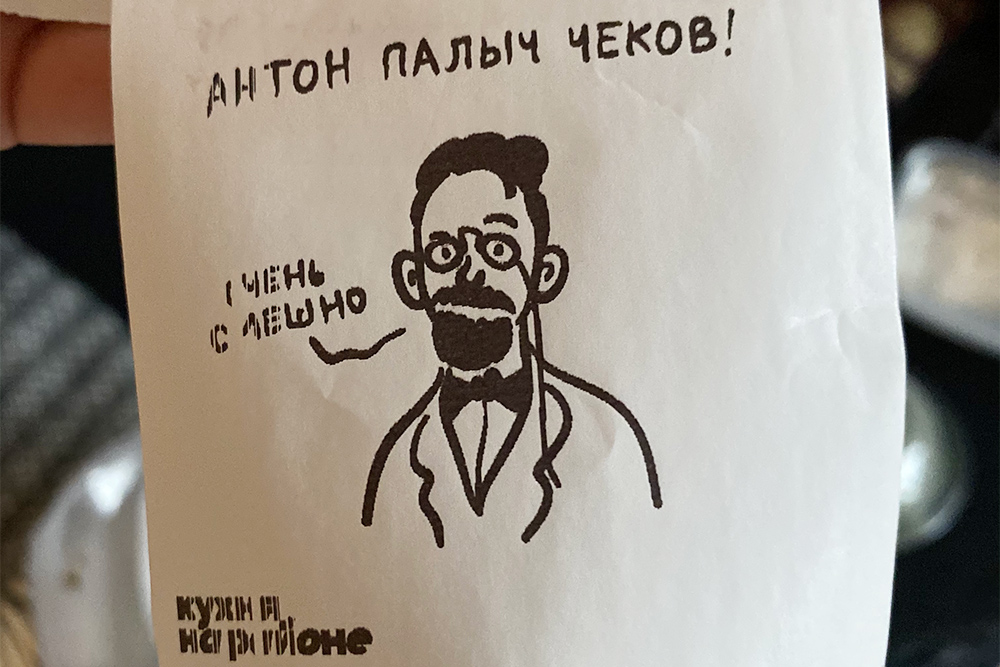 АНТОН ПАЛЫЧ ЧЕКОВ!
ОЧЕНЬ
СМЕШНО
кухня
на районе